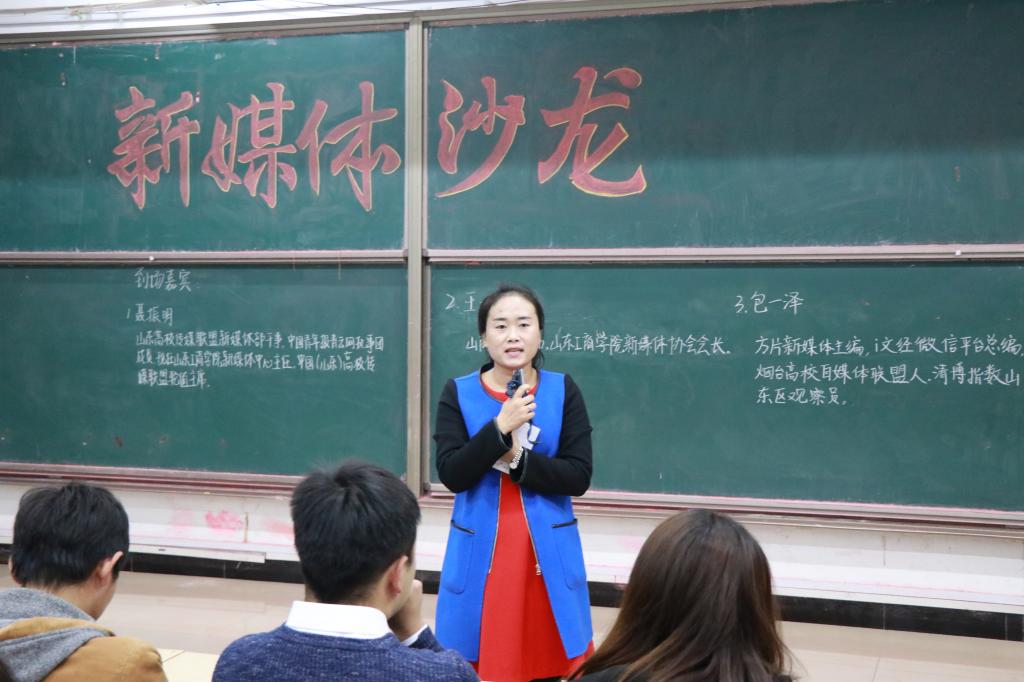 新媒体沙龙
到场嘉宾:
1.聂振明
山东高校传媒联盟新媒体部干事,中国青年报青豆网政事团
成员,现任山东工商学院新媒体中心主任,中国(山东)高校传
媒联盟轮值主席.
2.王
山 山东工商学院新媒体协会会长。
3.包一泽
方片新媒体主编,i文经微信平台总编,
烟台高校自媒体联盟人.清博指数山
东区观察员。